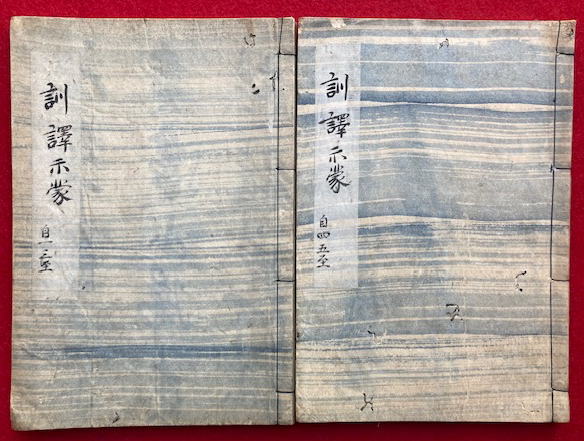 訓譯示蒙
自一三至
訓譯示蒙
自四五至